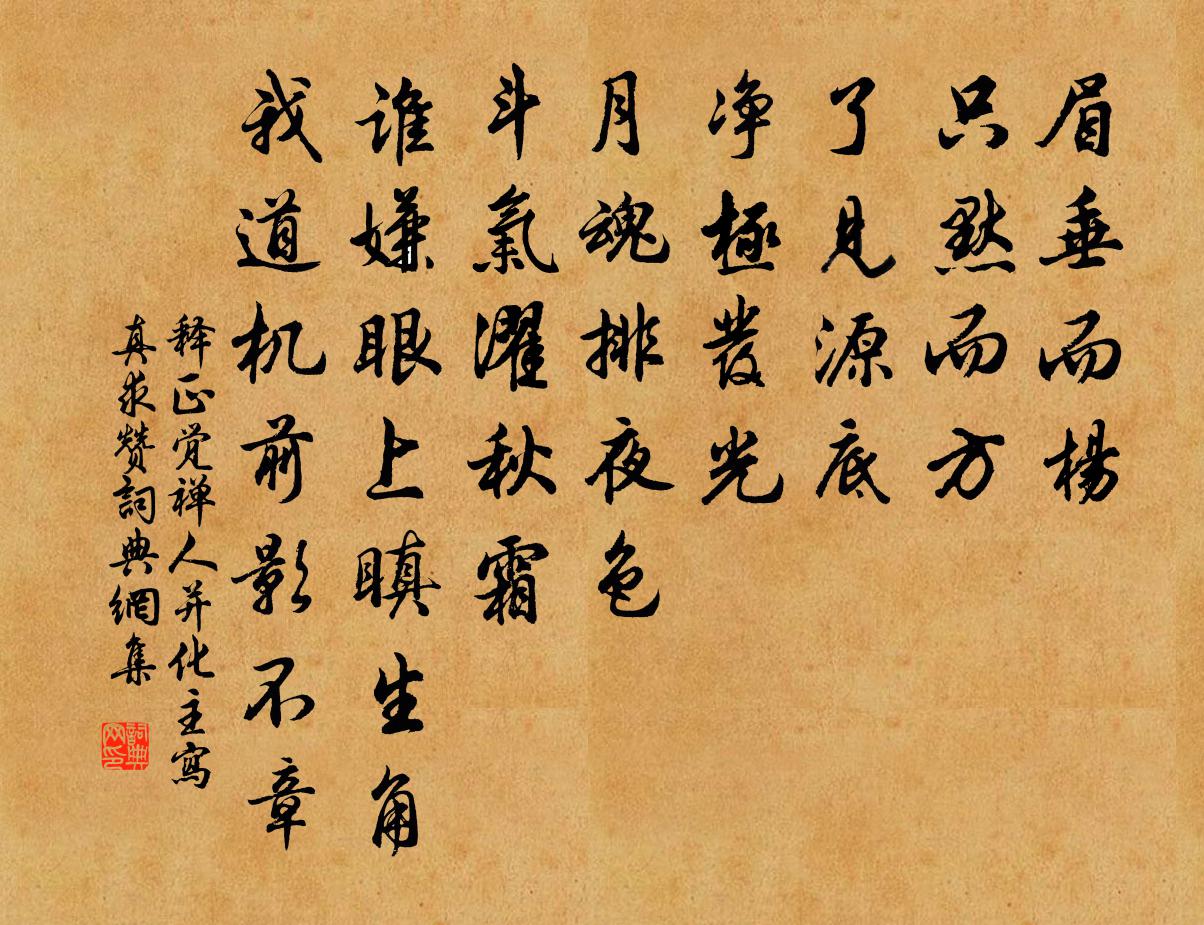 眉垂而楊
只默而方
了見源底
净極發光
月魂排夜色
斗氣濯秋霜
谁嫌眼上瞋生角
我道机前影不章
释正觉禅人并化主寫
真求赞詞典網集
詞典网印